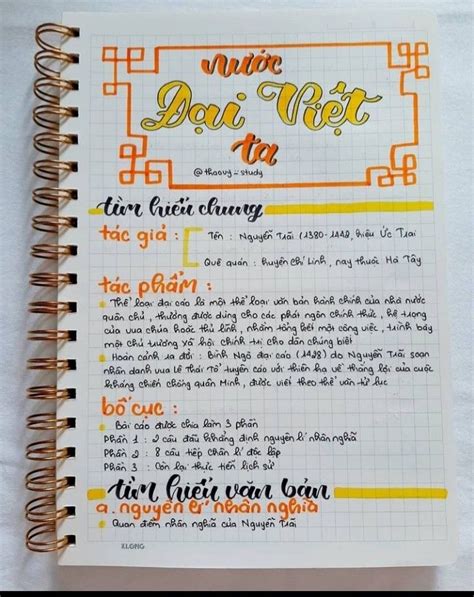 nước
Đại Việt
ta
@thaovy_study
tìm hiểu chung
tác giả :
Tên : Nguyễn Trãi (1380-1442, hiệu Ức Trai
Quê quán : huyện Chí Linh, nay thuộc Hà Tây
tác phẩm :
Thể loại đại cáo là một thể loại văn bản hành chính của nhà nước
quân chủ, thường được dùng cho các phát ngôn chính thức, hệ trọng
của vua chúa hoặc thủ lĩnh, nhằm tổng kết một công việc, trình bày
một chủ trương xã hội chính trị cho dân chúng biết
Hoàn cảnh ra đời : Bình Ngô đại cáo (1428) do Nguyễn Trãi soạn
nhân danh vua Lê Thái Tổ tuyên cáo với thiên hạ về thắng lợi của cuộc
kháng chiến chống quân Minh, được viết theo thể văn tứ lục
bố cục :
Bài cáo được chia làm 3 phần
Phần 1 : 2 câu đầu khẳng định nguyên lí nhân nghĩa
Phần 2 : 8 câu tiếp Chân lí độc lập
Phần 3 : Còn lại thực tiễn lịch sử
tìm hiểu văn bản
a. nguyên lí nhân nghĩa
Quan điểm nhân nghĩa của Nguyễn Trãi
KLONG